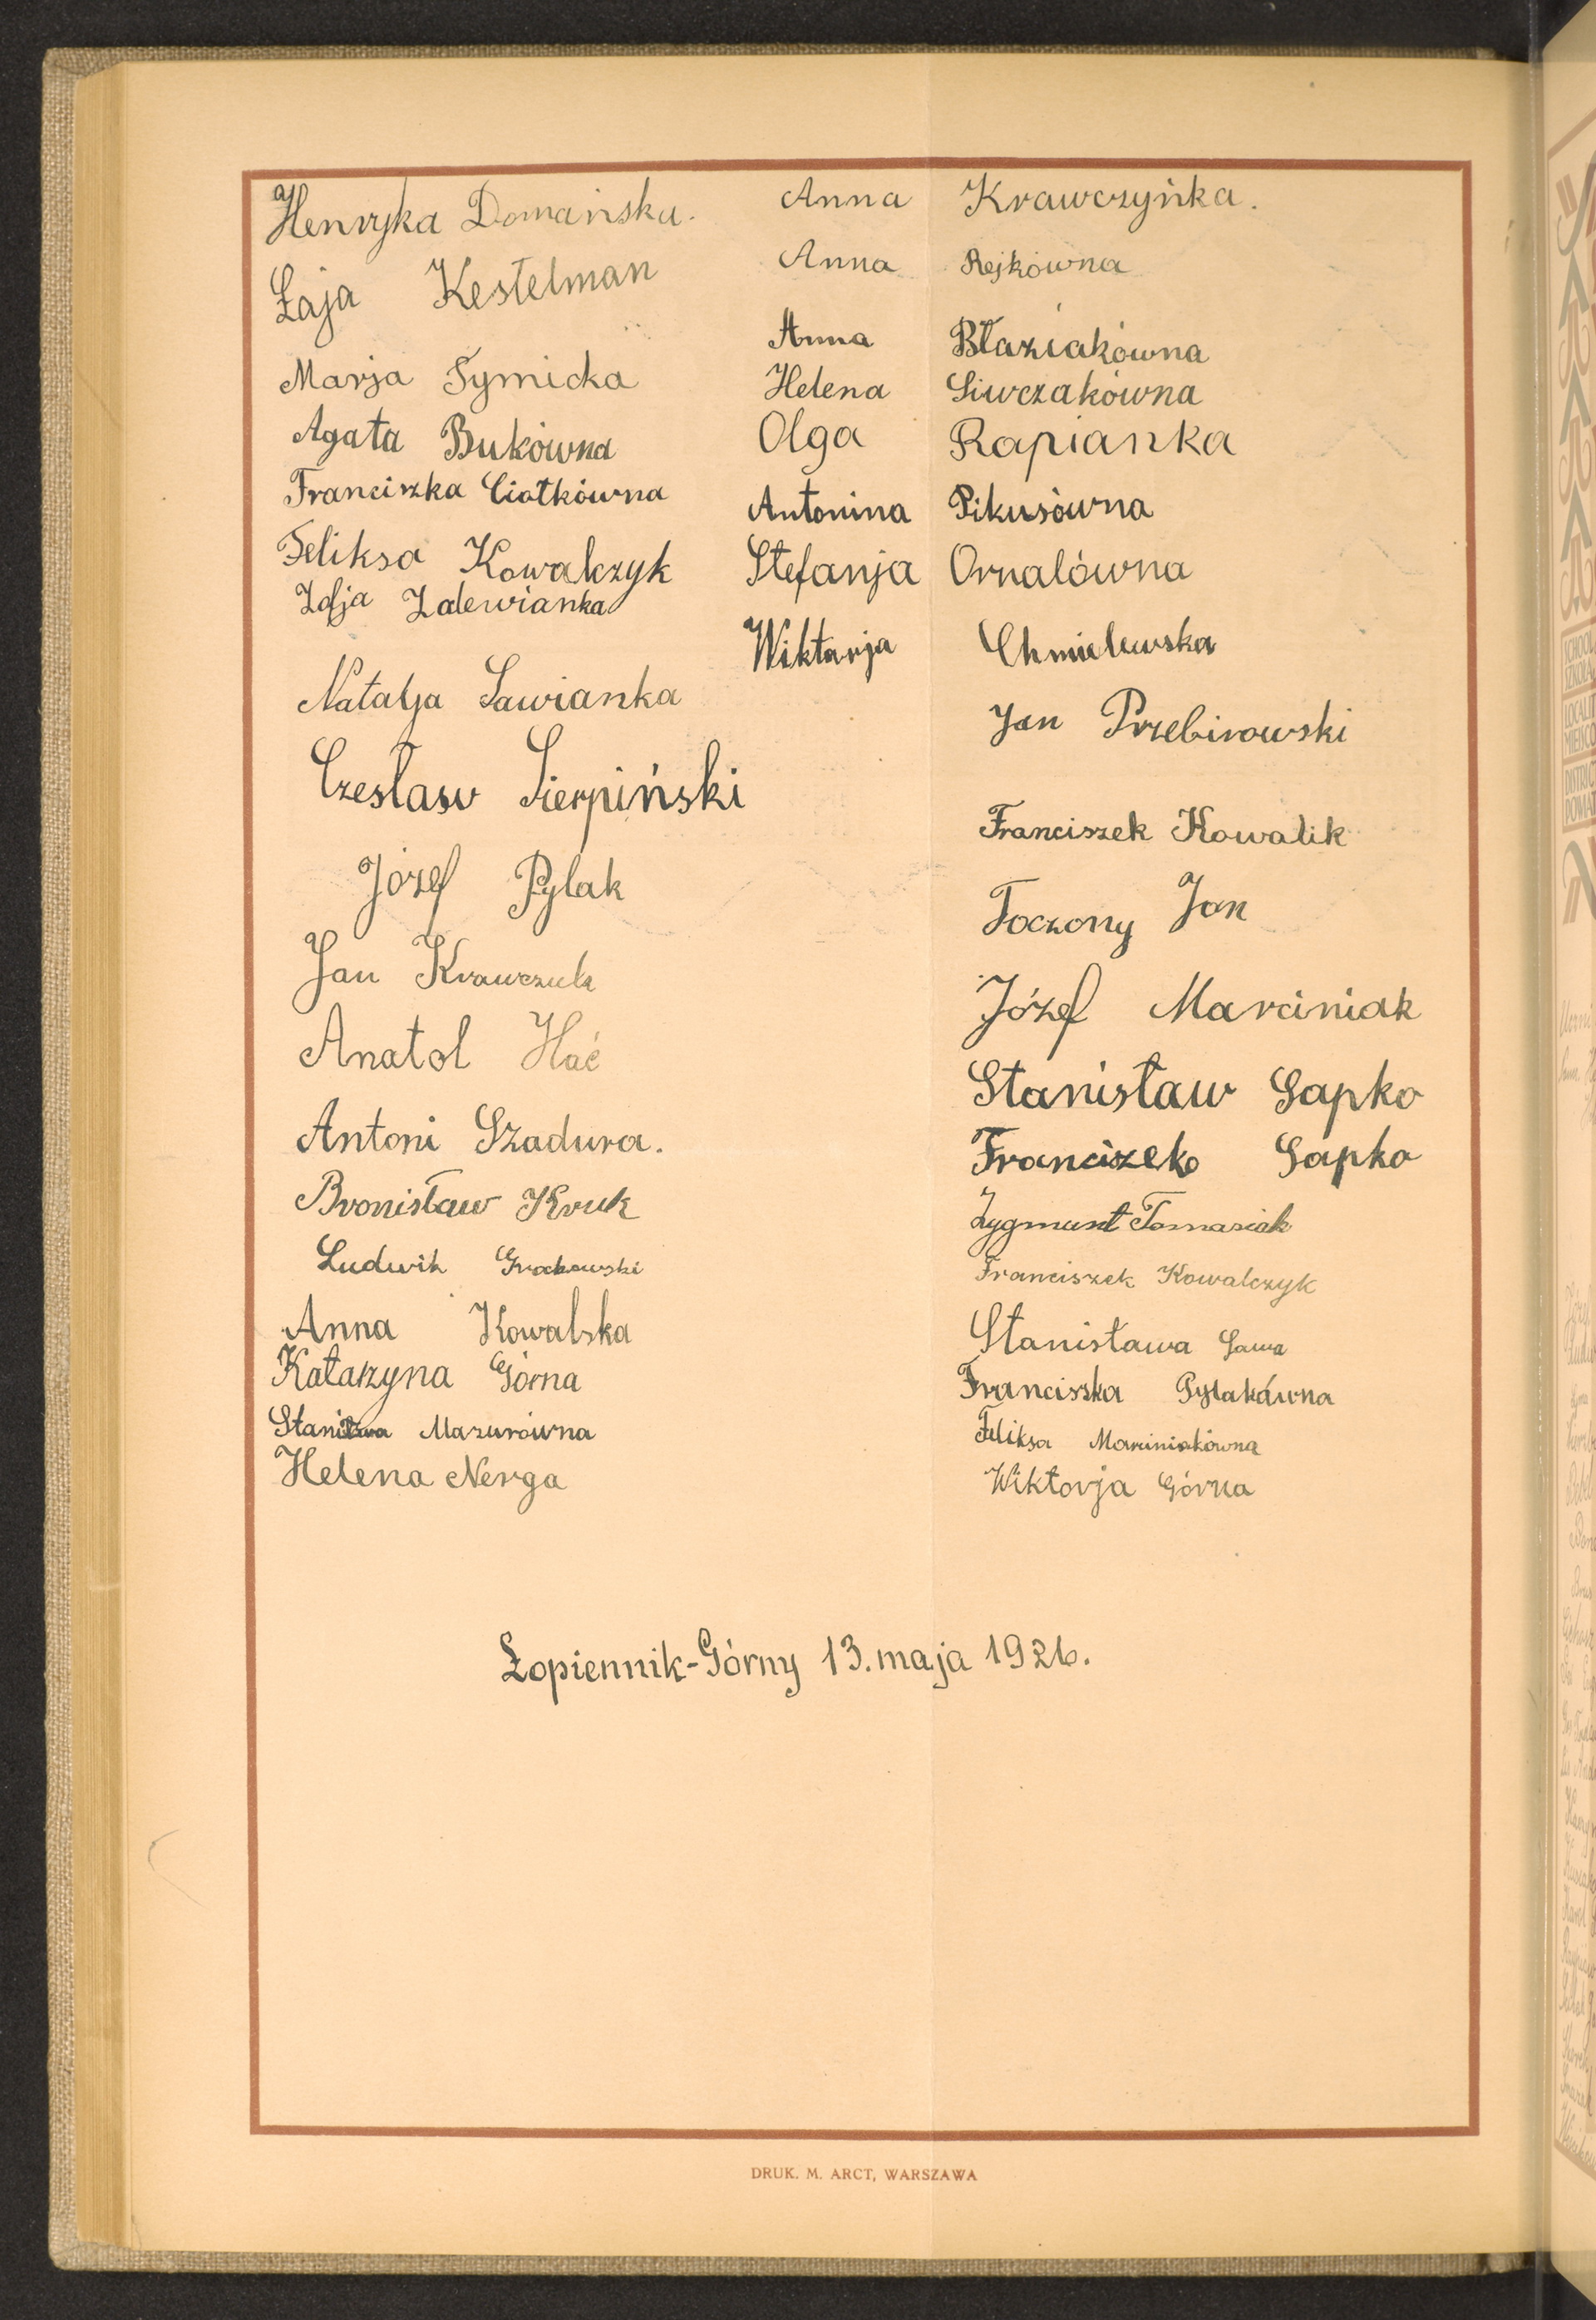 Henryka Domańska.
Łaja Kestelman
Marja Tymicka
Agata Bukówna
Franciszka Ciotkówna
Feliksa Kowalczyk
Zofja Zalewianka
Natalja Sawianka
Czesław Sierpiński
Józef Pylak
Jan Krawczuk
Anatol Hać
Antoni Szadura.
Bronisław Kruk
Ludwik Grochowski
Anna Kowalska
Katarzyna Górna
Mazurówna
Helena Nerga
Anna Krawczyńka.
Anna Rejkówna
Anna Błaziakówna
Helena Siwczakówna
Olga Rapianka
Antonina Pikusówna
Stefanja Ornalówna
Wiktorja Chmielewska
Jan Przebirowski
Franciszek Kowalik
Toczony Jan
Józef Marciniak
Stanisław Sapko
Franciszek Sapko
Zygmunt Tomasiak
Franciszek Kowalczyk
Stanisława Sawa
Franciszka Pylakówna
Feliksa Marciniakówna
Wiktorja Górna
Łopiennik-Górny 13. maja 1926.
DRUK. M. ARCT, WARSZAWA